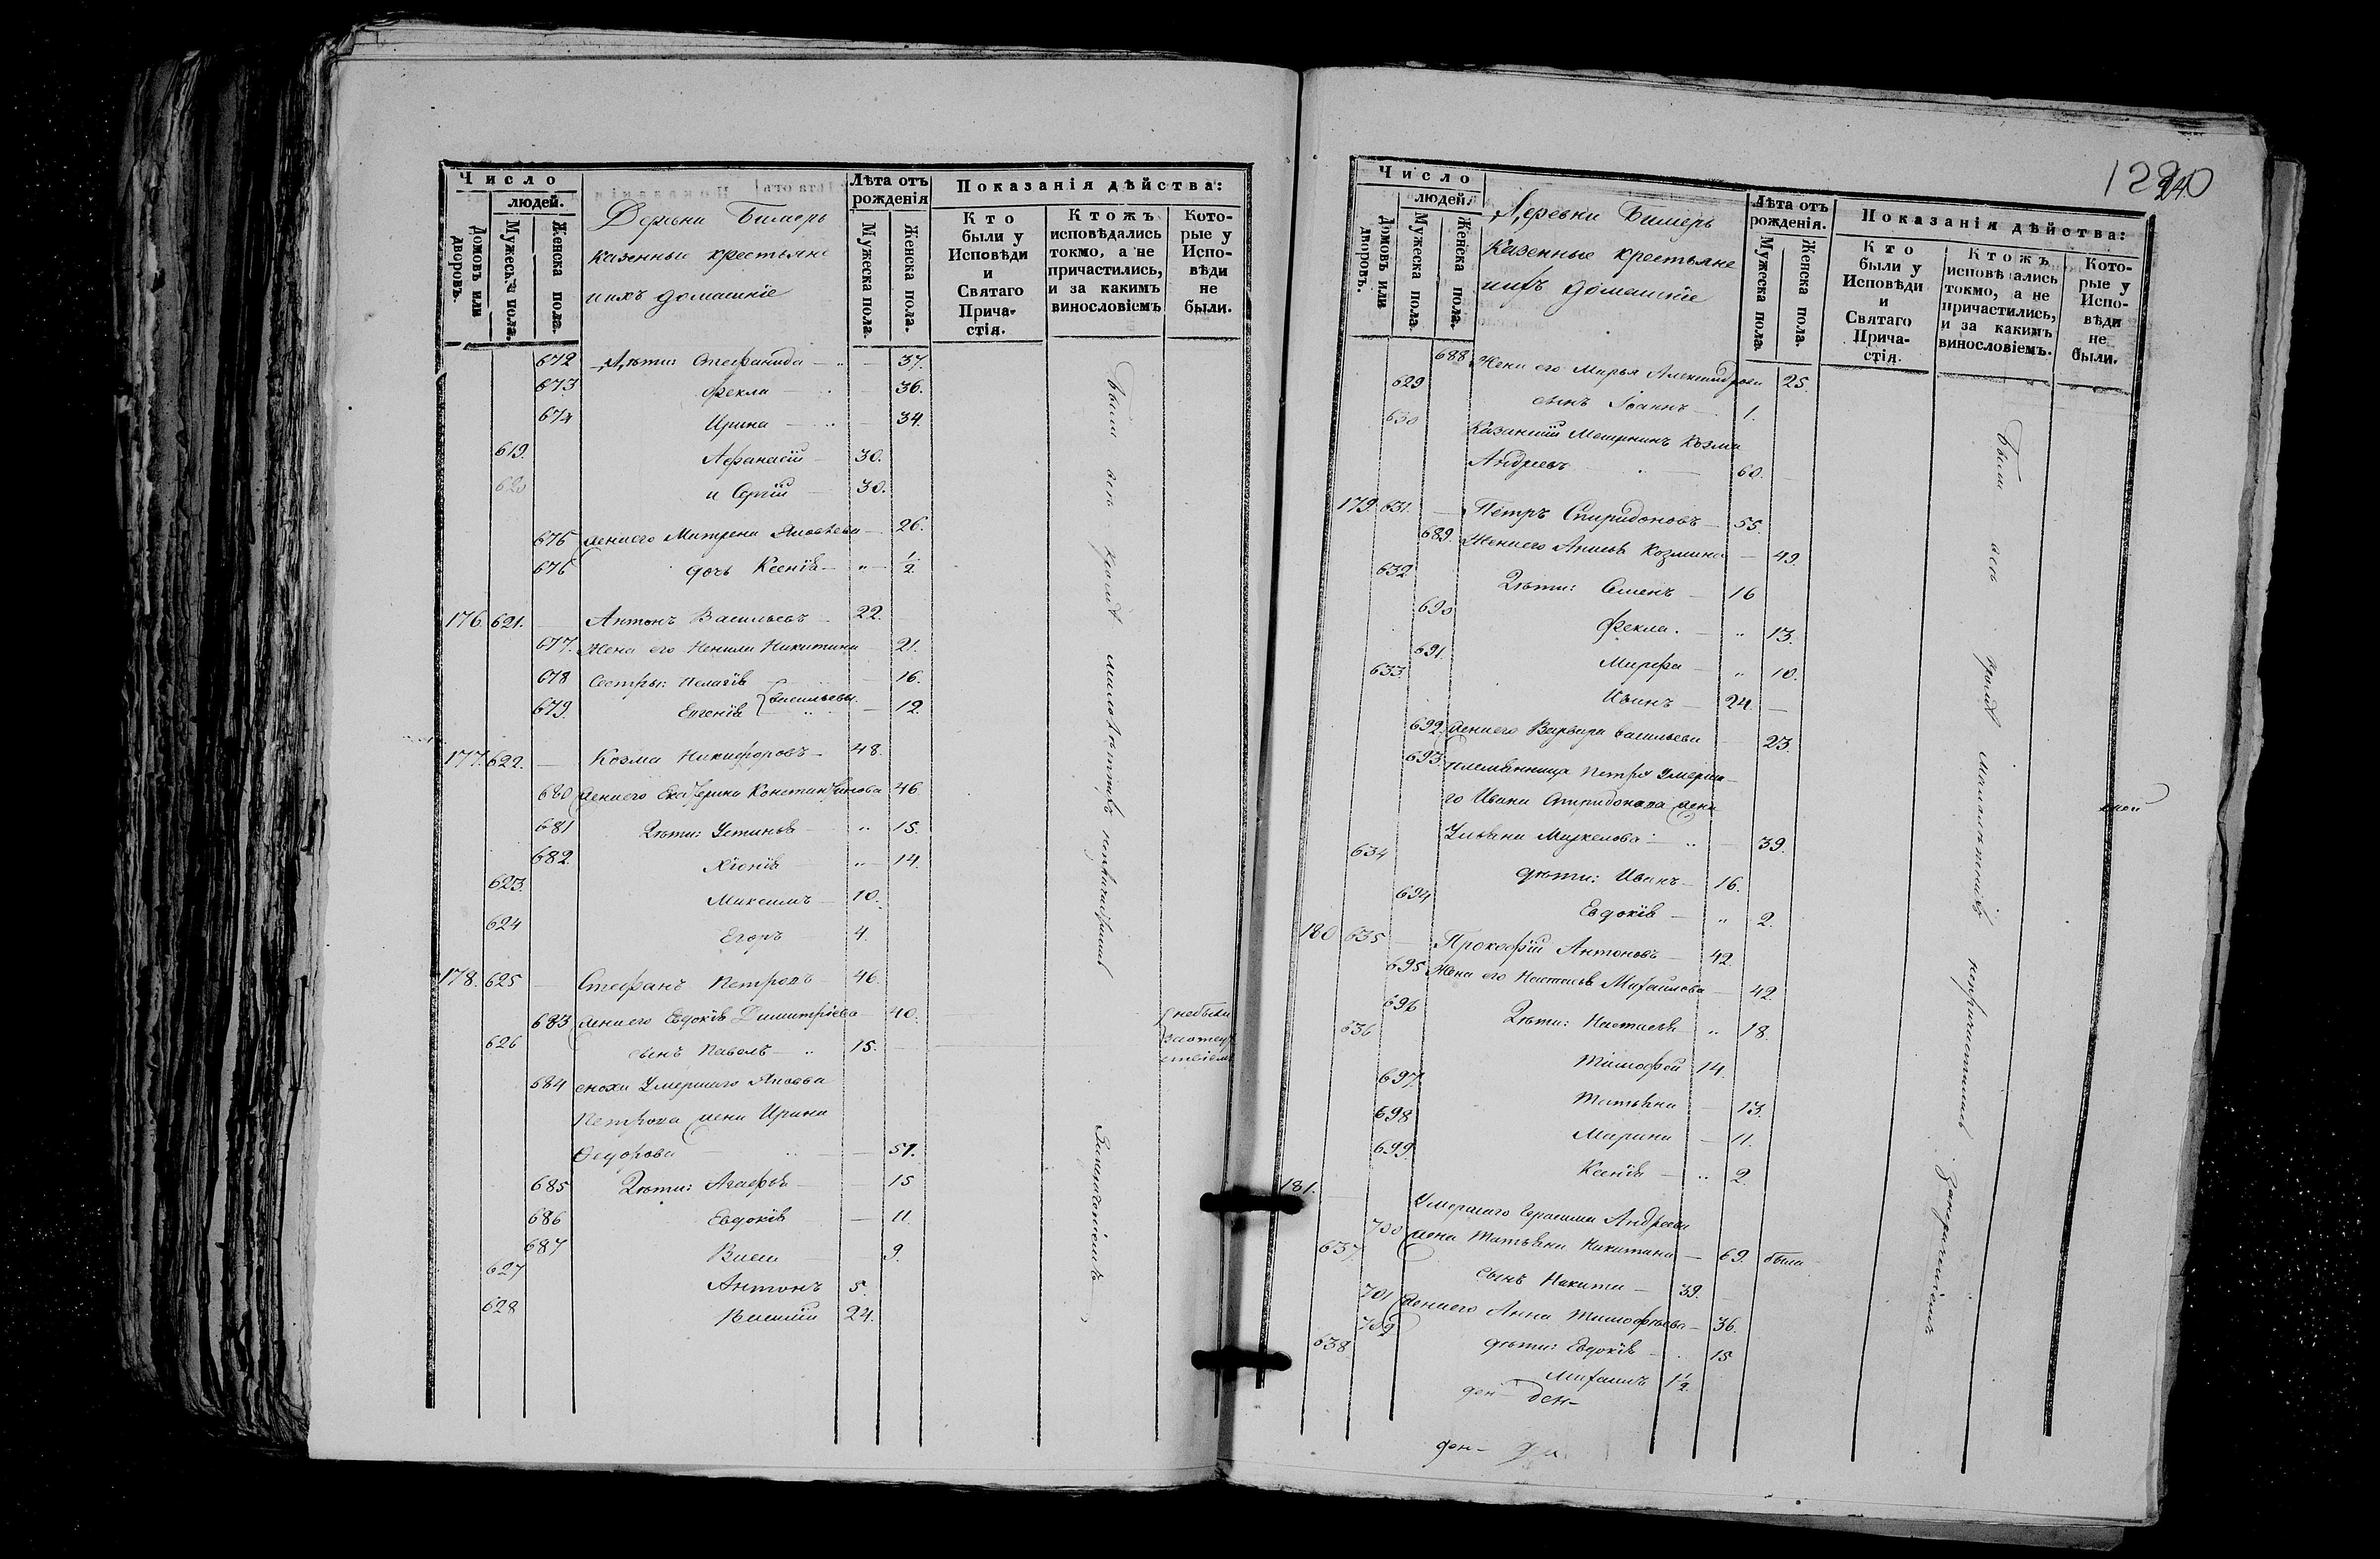 Число
людей.
Домовъ или дворовъ.
Мужеска пола.
Женска пола.
Деревни Бимерь
казенные крестьяне
иихъ домашніе
Лѣта отъ рожденія
Мужеска пола.
Женска пола.
Показанія дѣйства:
Кто были у Исповѣди и Святаго Прича-стія.
Ктожъ исповѣдались токмо, а не причастились, и за какимъ винословіемъ
Кото-рые у Испо-вѣди не были.
672 Дѣти: Стефанида — 37.
673 Фекла — 36.
674 Ирина — 34.
619. Афанасій — 30.
620 и Сергій — 30.
675 жена его Матрена Яковлева — 26.
676 дочь Ксенія — " 1/2
176. 621. Антонъ Васильевъ — 22.
677. Жена его Ненила Никитина 21.
678 Сестры: Пелагія — 16.
679. Евгенія } Васильевы. — 12.
177. 622. — Козма Никифоровъ — 48.
680 жена его Екатерина Константинова 46
681 Дѣти: Устинья " 15.
682. Хіонія " 14.
623. Максимъ — 10.
624 Егоръ 4.
178. 625 — Стефанъ Петровъ 46.
683 жена его Евдокія Димитріева 40.
небыли
626 сынъ Павелъ — " 15.
684 сноха Умершаго Якова
Петрова жена Ирина
Федорова — 51.
685 Дѣти: Агафья — 15
686 Евдокія — 11.
687 Васса 9.
627 Антонъ 5.
628 24.
Были всѣ
1240
Число
людей.
Домовъ или дворовъ.
Мужеска пола.
Женска пола.
Деревни Бимерь
Казенные крестьяне
иихъ домашніе
Лѣта отъ рожденія.
Мужеска пола.
Женска пола.
Показанія дѣйства:
Кто были у Исповѣди и Святаго Прича-стія.
Ктожъ исповѣдались токмо, а не причастились, и за какимъ винословіемъ.
Кото-рые у Испо-вѣди не были.
688 Жена его Марья Александрова 25.
629 сынъ Іоаннъ — 1.
630 Казанскій Мещанинъ Козма
Андреевъ — 60.
179. 631. — Петръ Спиридоновъ — 55.
689. Жена его Анисья Козмина — 49.
632 Дѣти: Семенъ — 16
690 Фекла. — " 13.
691. Марфа — " 10.
633. Иванъ — 24 —
692. жена его Варвара Васильева 23.
693. племянница Петра Умерша-
го Ивана Спиридонова жена
Ульяна — " 39.
634 дѣти: Иванъ — 16.
694 Евдокія — " 2.
180 635 — Прокофій Антоновъ — 42.
695 Жена его Настасья Михайлова 42.
696 Дѣти: Настасья — " 18.
636 Тимофей 14.
697. Татьяна — 13.
698 Марина — 11.
699. Ксенія — " 2.
181. Умершаго Герасима Андреева
700 жена Татьяна Никитина — 69. была
637. сынъ Никита — 39.
701 жена его Анна Тимофѣева — 36.
702 дѣти: Евдокія — 15
638 Михаилъ 1 1/2.
ден- ден-
ден-
Были всѣ